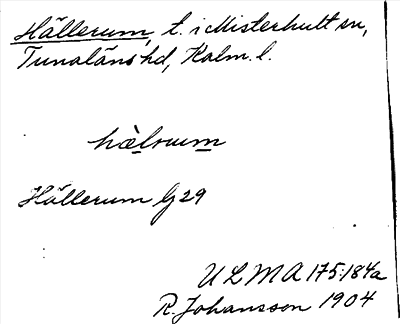 Hällerum, t. i Misterhult sn,
Tunaläns hd, Kalm. l.
hàlrum
Hällerum Gj 29
ULMA 175:184a
R. Johansson 1904